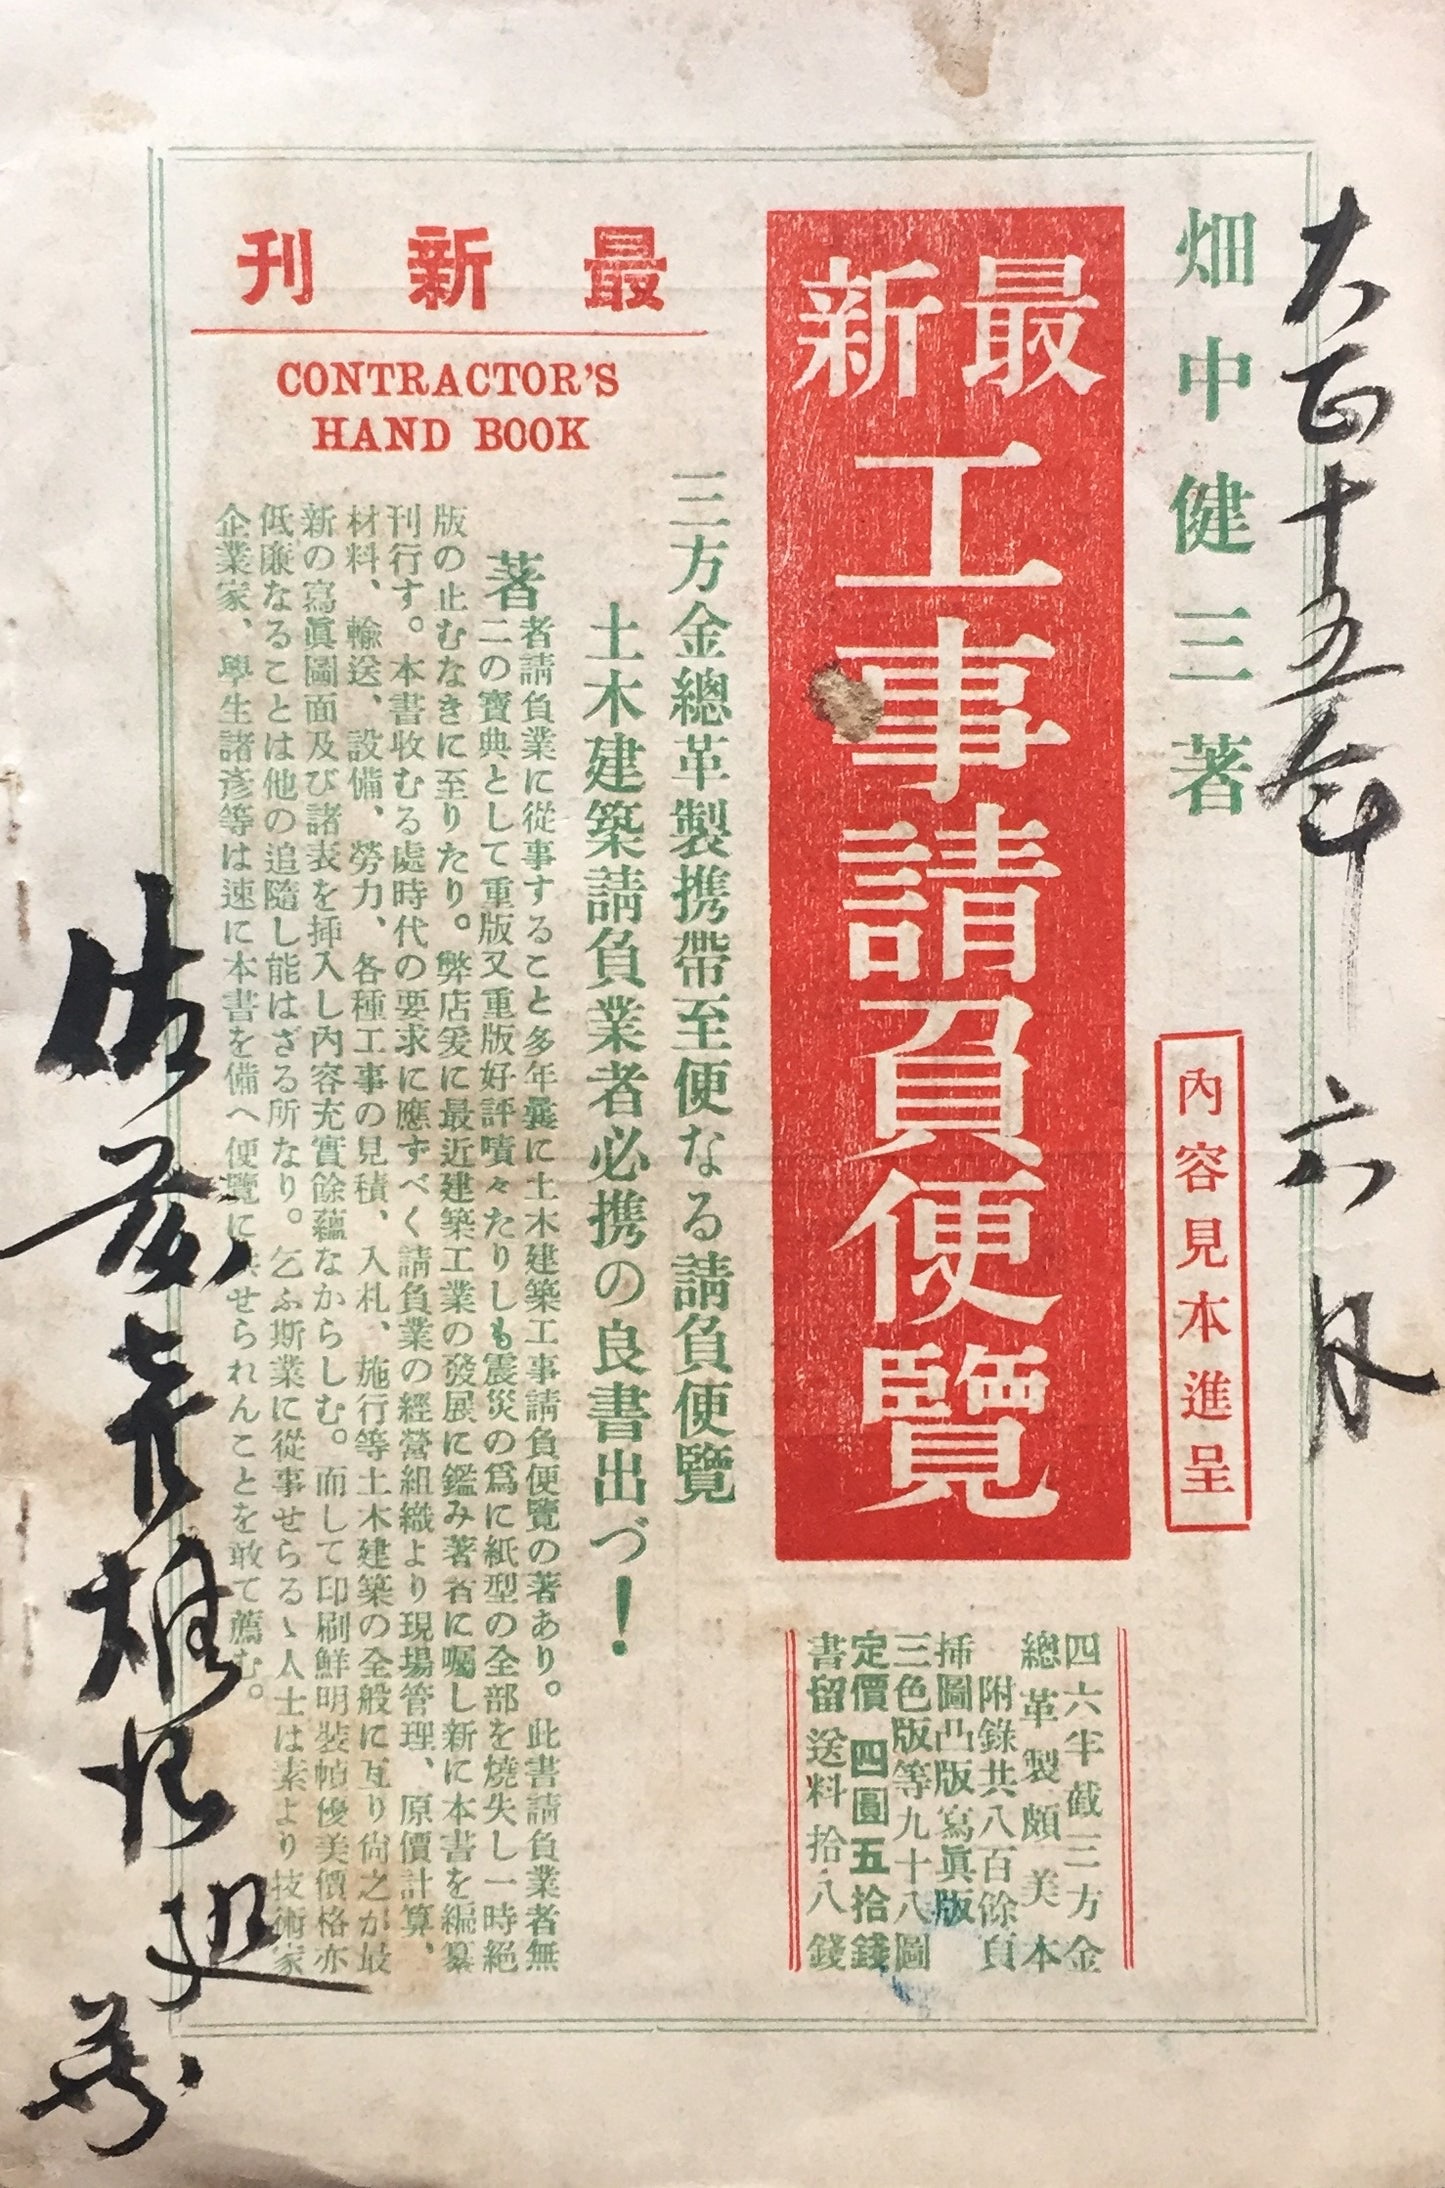 大正十五年六月
畑中健三著
內容見本進呈
最新
工事請負便覽
四六半截三方金
總革製頗美本
附錄共八百餘頁
挿圖凸版寫眞版
三色版等九十八圖
定價四圓五拾錢
書留送料拾八錢
最新刊
CONTRACTOR'S
HAND BOOK
三方金總革製携帶至便なる請負便覽
土木建築請負業者必携の良書出づ!
著者請負業に從事すること多年曩に土木建築工事請負便覽の著あり。此書請負業者無
二の寶典として重版又重版好評嘖々たりしも震災の爲に紙型の全部を燒失し一時絕
版の止むなきに至りたり。弊店爰に最近建築工業の發展に鑑み著者に囑し新に本書を編纂
刊行す。本書收むる處時代の要求に應ずべく請負業の經營組織より現場管理、原價計算、
材料、輸送、設備、勞力、各種工事の見積、入札、施行等土木建築の全般に亙り尙之が最
新の寫眞圖面及び諸表を挿入し內容充實餘蘊なからしむ。而して印刷鮮明裝幀優美價格亦
低廉なることは他の追隨し能はざる所なり。乞ふ斯業に從事せらるゝ人士は素より技術家
企業家、學生諸彥等は速に本書を備へ便覽に供せられんことを敢て薦む。